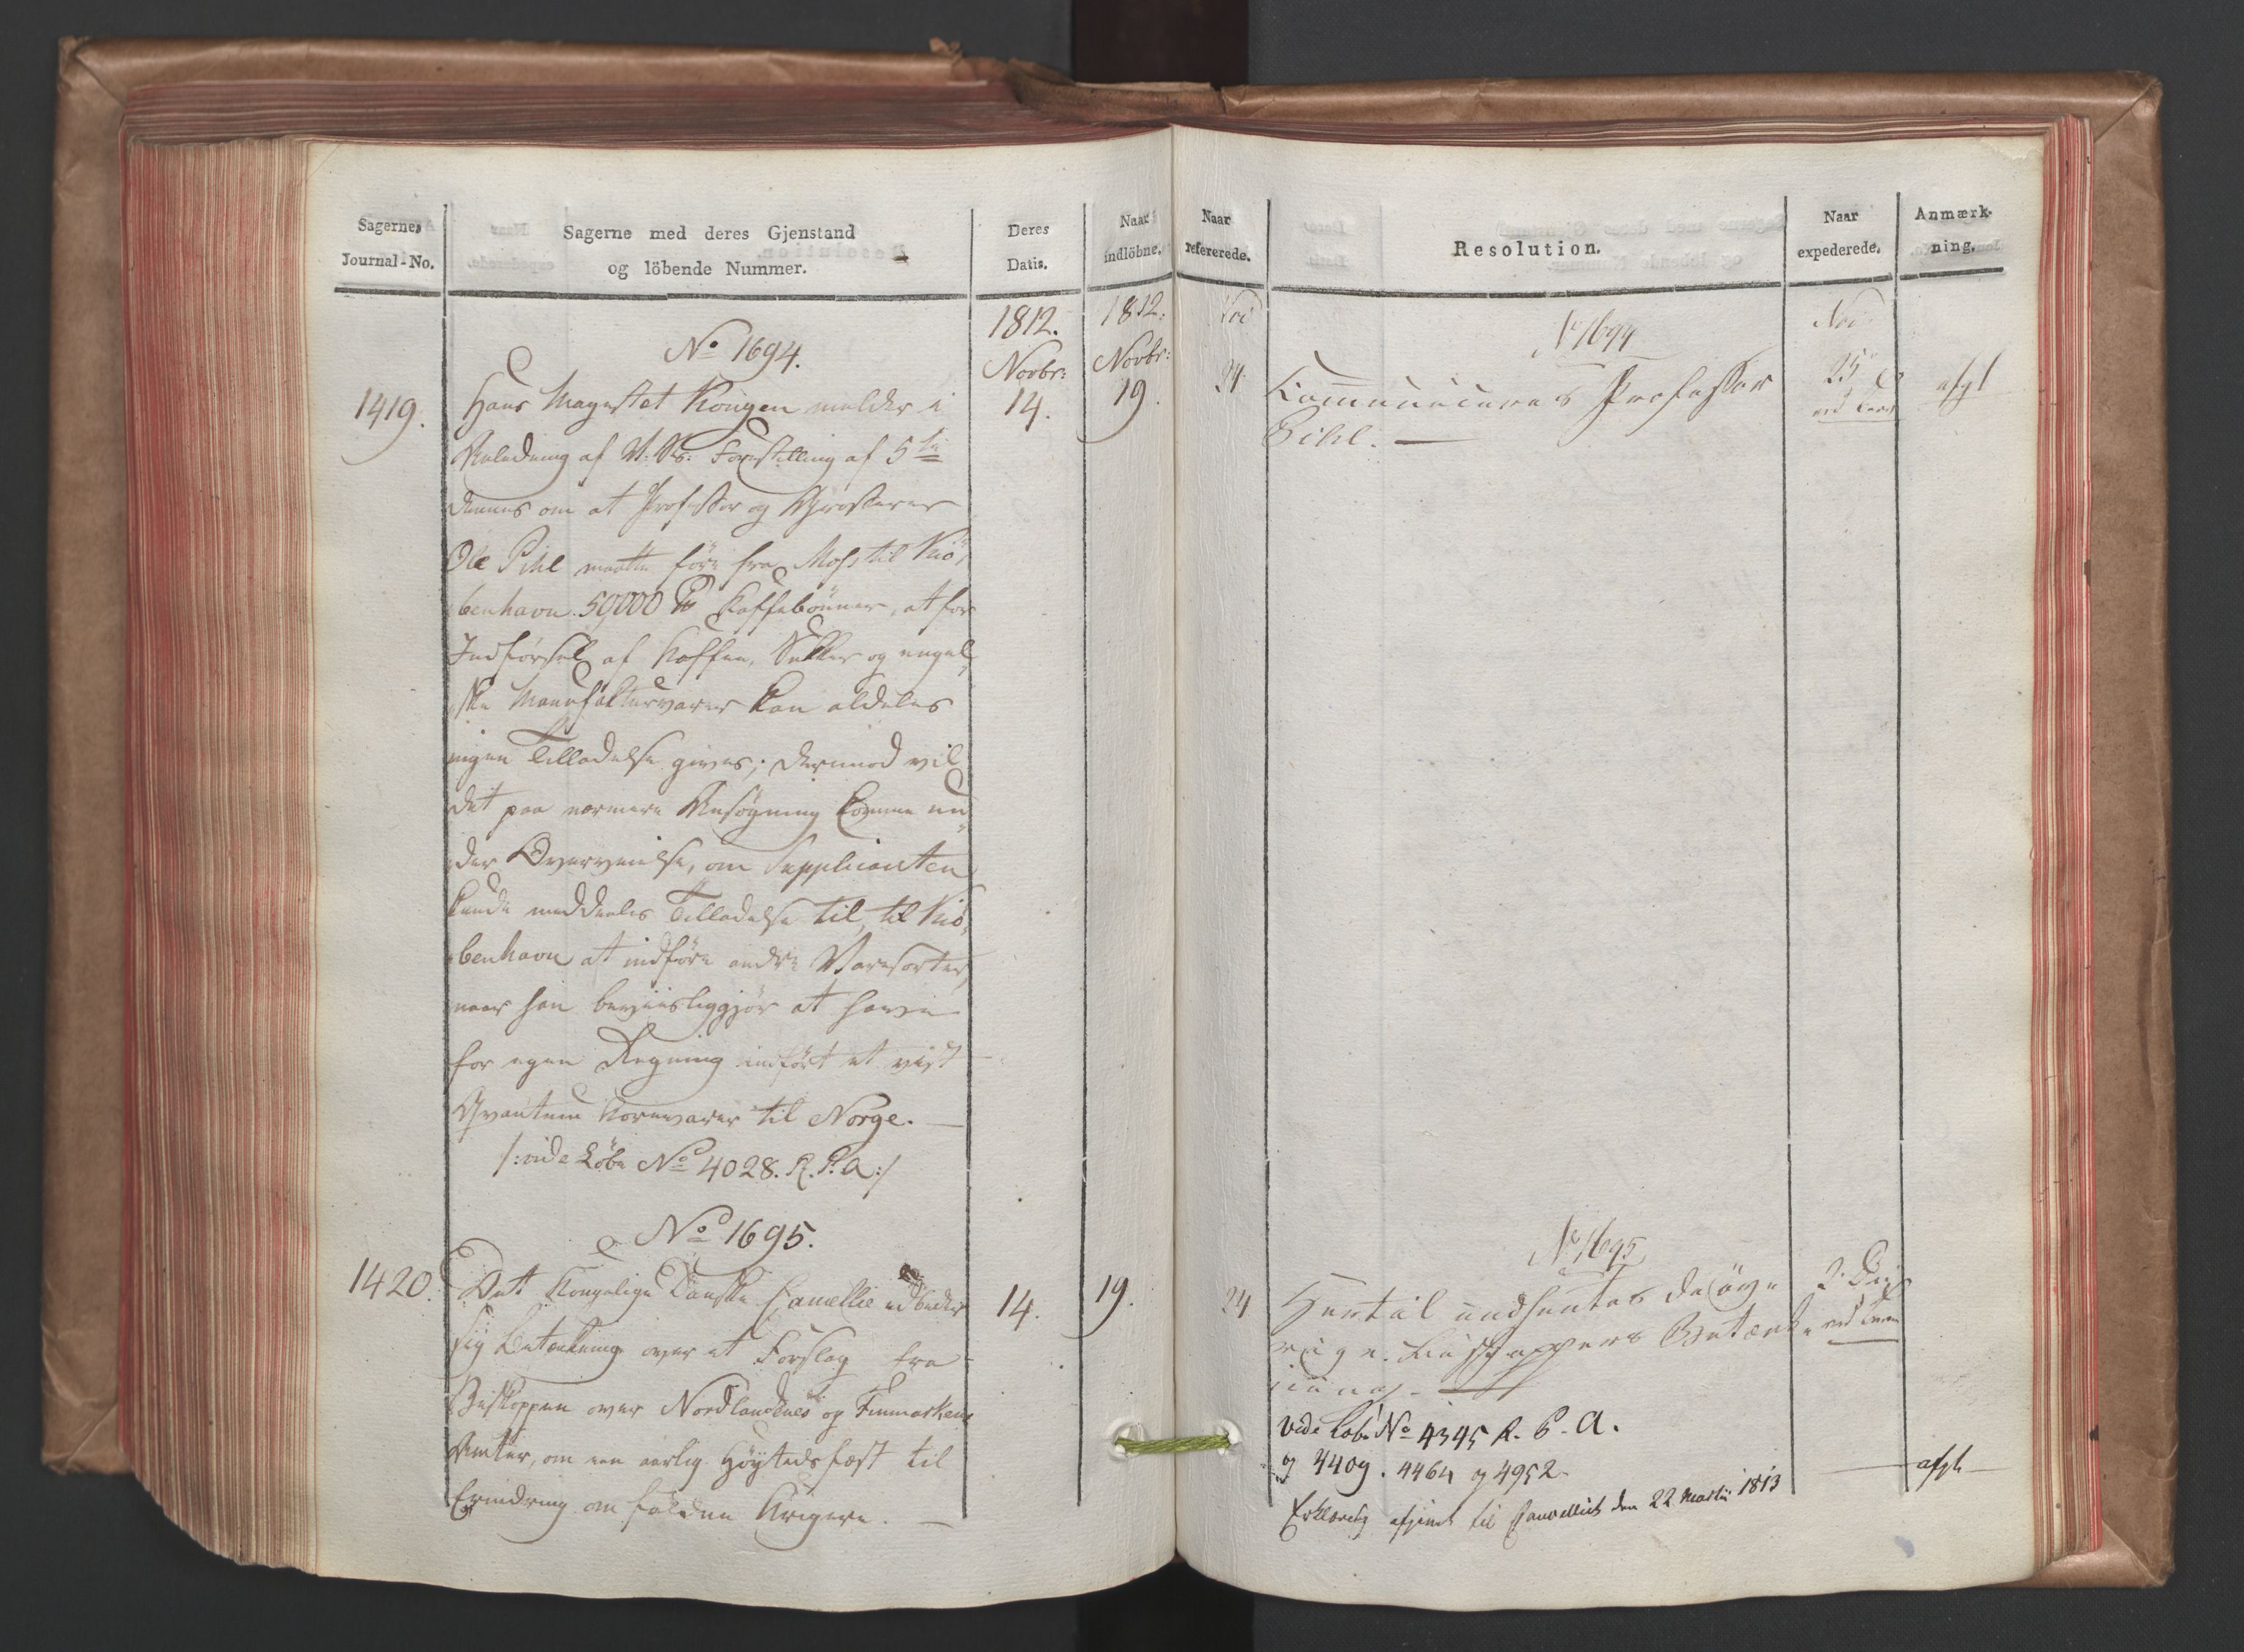 Sagernes
Journal-No.
Sagerne med deres Gjenstand
og löbende Nummer.
Deres
Datis.
Naar
indlöbne.
1812.
Novbr:
1812.
Novbr:
No 1694.
1419.
14.
19.
Hans Mayestet Kongen melder i
Anledning af V. Ks: Forestilling af 5te
dennes om at Professor og Grosserer
Ole Pihl maatte före fra Moss til Kiö,
benhavn 50000 ℔ Kaffebönner, at for
Indförsel af Kaffee, Sukker og engel,
ske Manufakturvarer kan aldeles
ingen Tilladelse gives; derimod vil
det paa nærmere Ansögning komme un
der Overveielse, om Supplicanten
kunde meddeeles Tilladelse til, til Kiö,
benhavn at indföre andre Varesorter,
naar han beviisliggjör at have
for egen Regning indfört et vist
Qvantum Kornvarer til Norge. —
/: vide Löbe No 4028. R. P. A:/
No 1695.
1420.
14.
19.
Det Kongelige Danske Cancellie udbeder
sig Betænkning over et Forslag fra
Biskoppen over Nordlandenes og Finmarkens
Amter, om een aarlig Höytidsfæst til
Erindring om faldne Krigere. —
Naar
refererede.
Resolution.
Naar
expederede.
Anmærk-
ning.
Nov
24
No 1694
Communiceres Professor
Pihl. —
Nov
25
ved Brev
afgl
24
No 1695
Hertil indhentes de öv
rige Biskoppers Betænk
ning. —
vide Löbe No 4345 R. P. A.
og 4409. 4464 og 4952
Erklæring afgivet til Cancelliet den 22 Martii 1813
2. Dec
ved Brev
afgl —